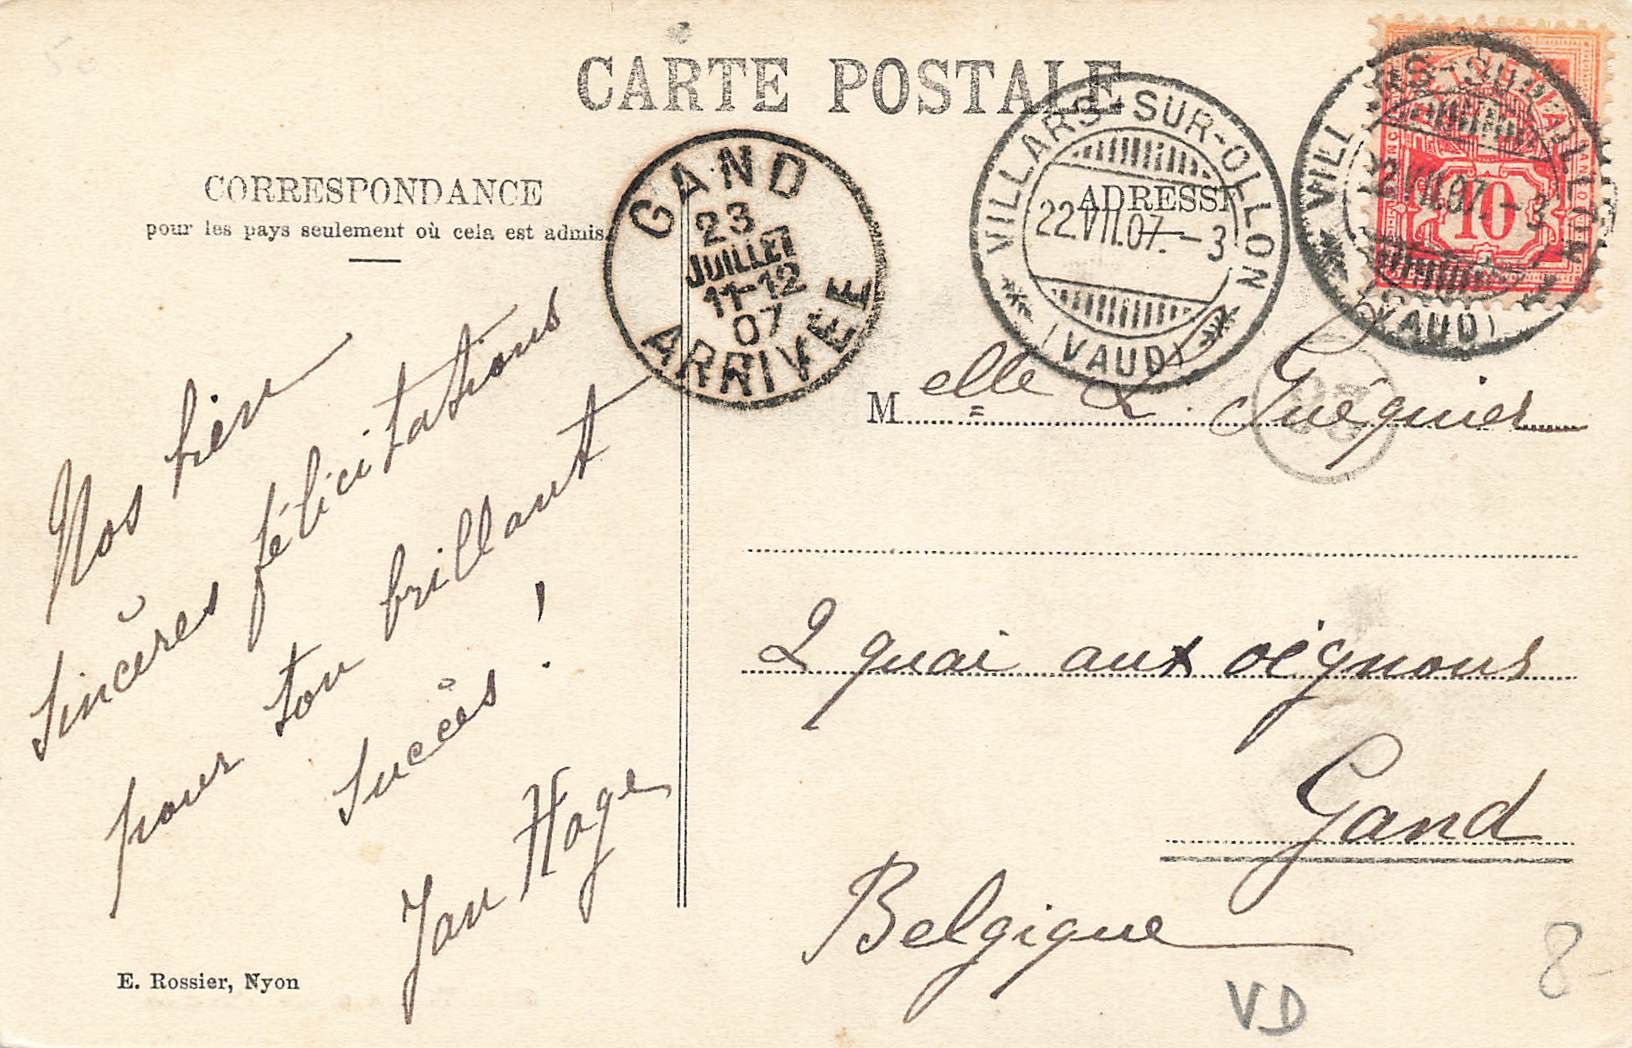 CARTE POSTALE
CORRESPONDANCE
pour les pays seulement où cela est admis.
ADRESSE
GAND
23
JUILLET
11-12
07
ARRIVÉE
VILLARS-SUR-OLLON
22.VII.07.-3
(VAUD)
10
Nos bien
sincères félicitations
pour ton brillant
succès !
Jan Hage
Melle L. Guéquier
2 quai aux oignons
Gand
Belgique
E. Rossier, Nyon
VD
8-